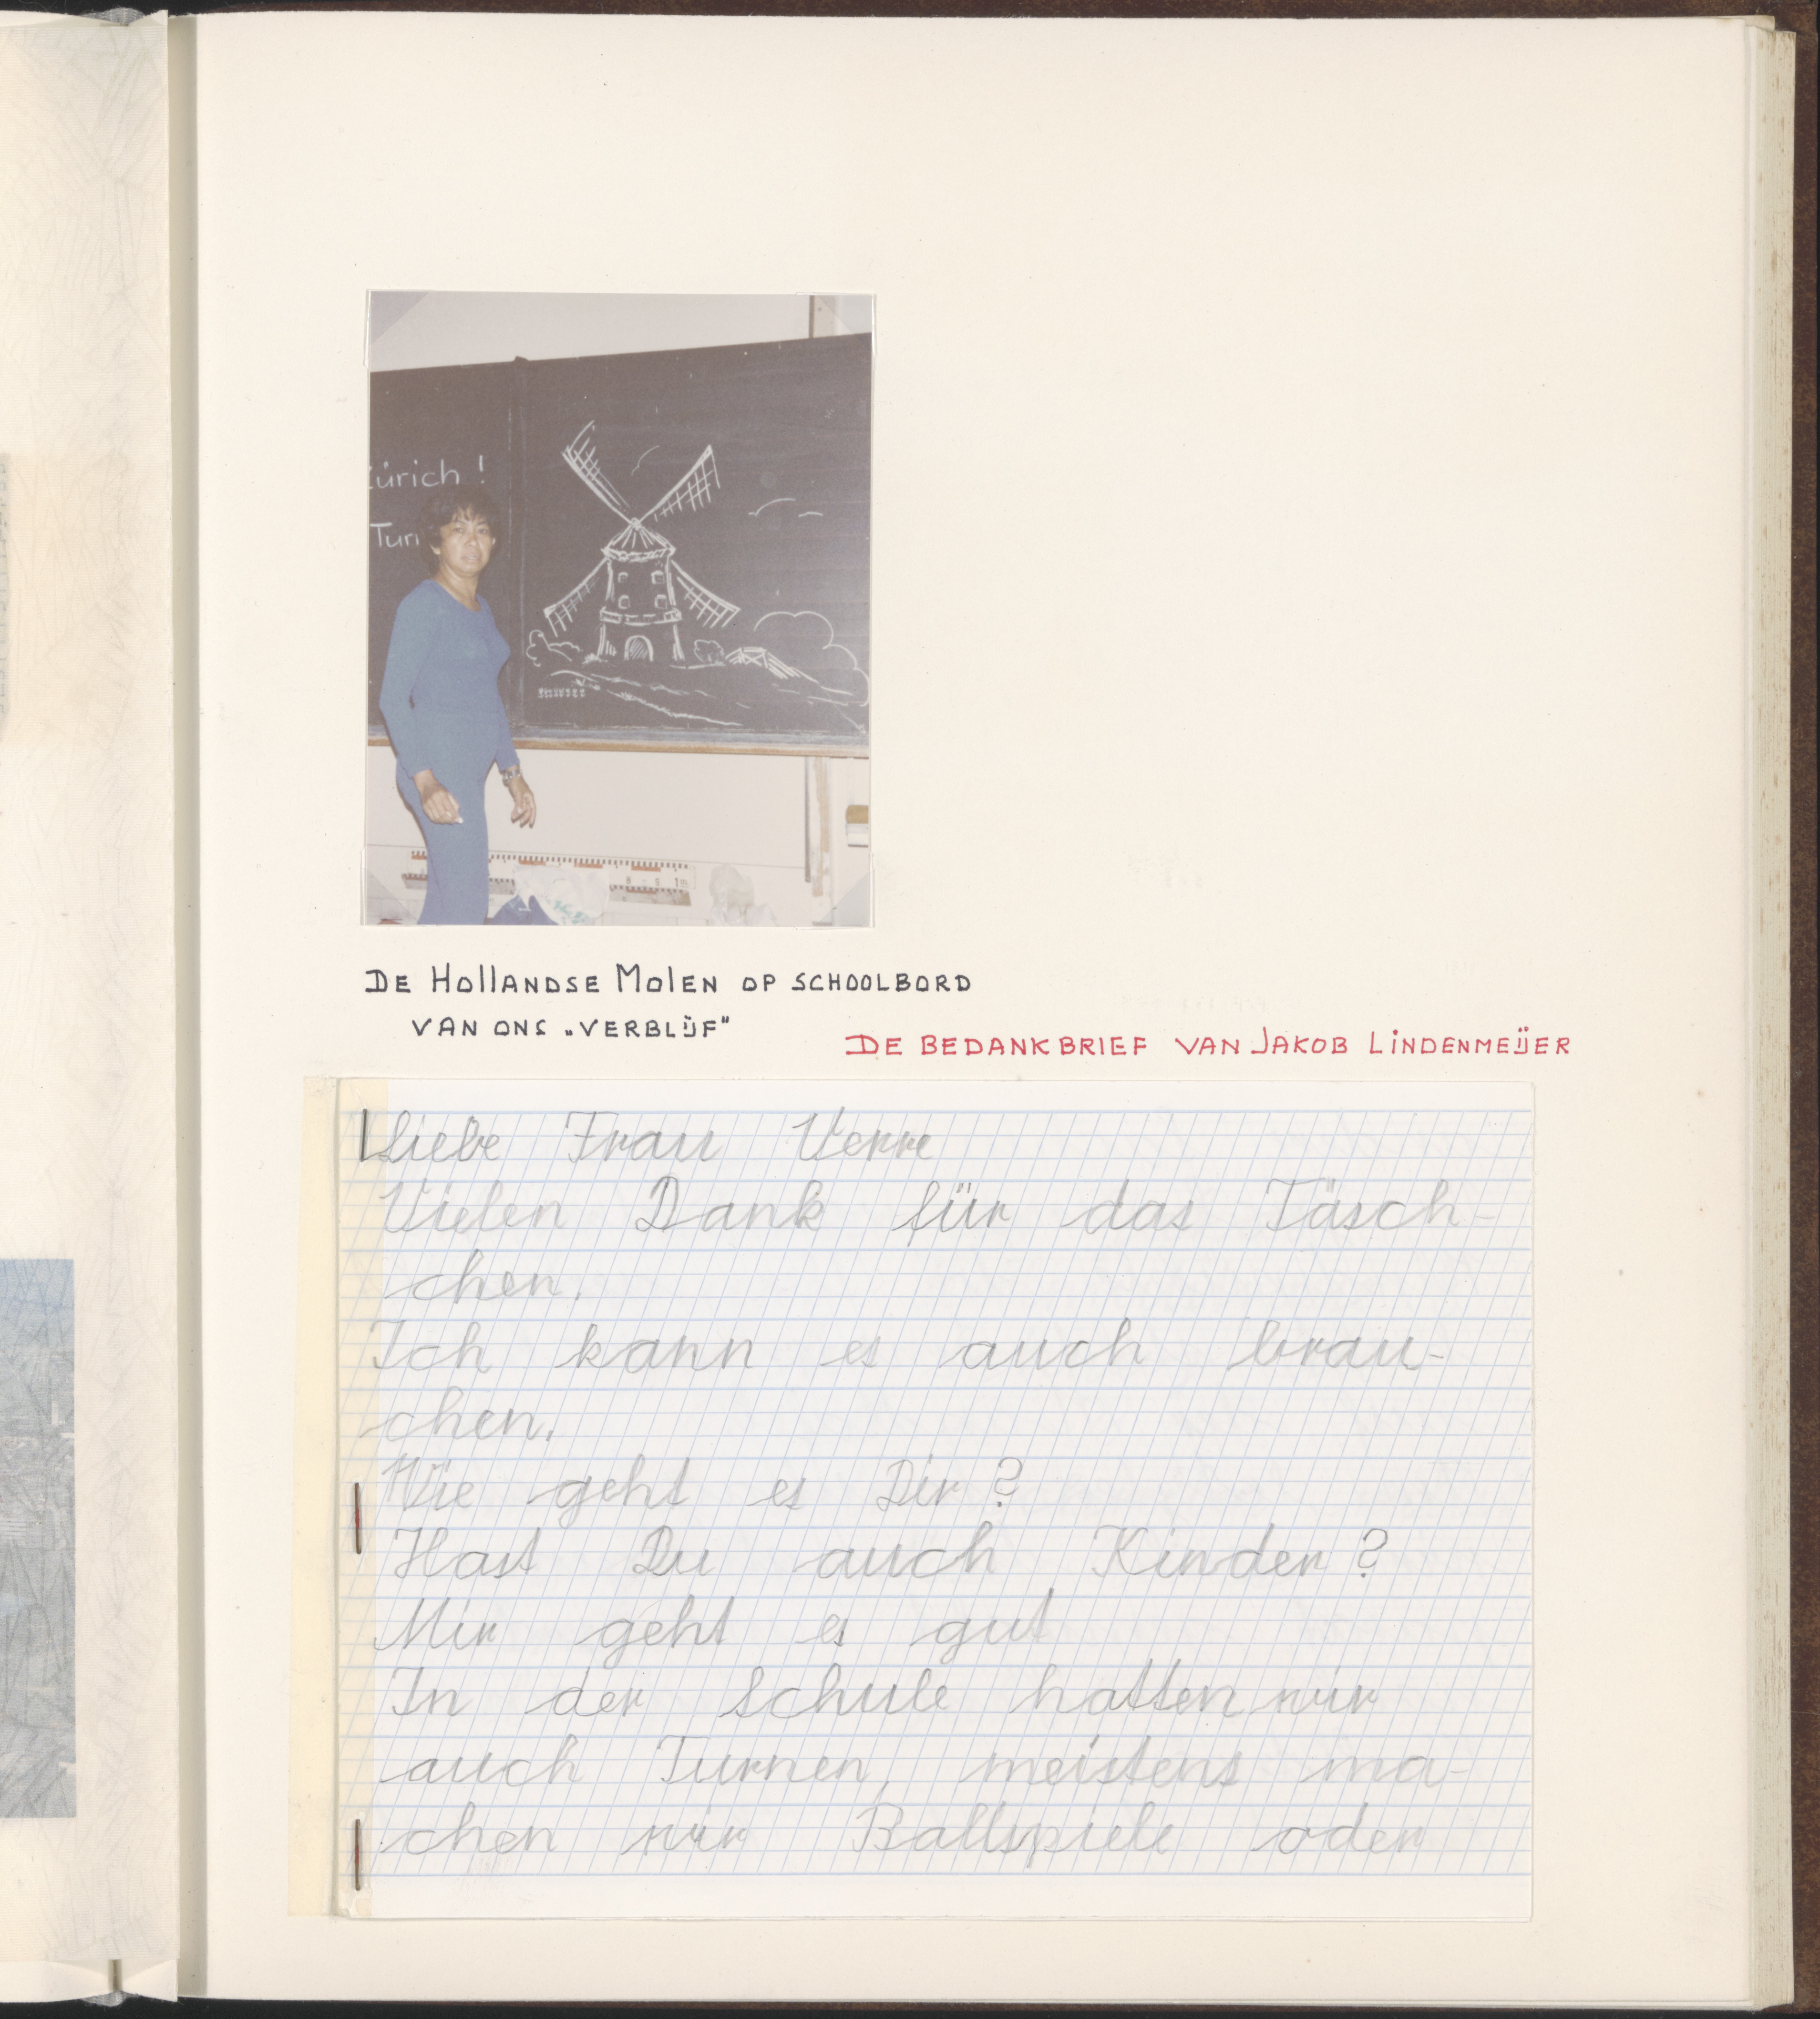 ürich !
Tur
DE HOLLANDSE MOLEN OP SCHOOLBORD
VAN ONS „VERBLIJF"
DE BEDANKBRIEF VAN JAKOB LINDENMEIJER
Liebe Frau Verre
Vielen Dank für das Täsch-
chen.
Ich kann es auch brau-
chen.
Wie geht es Dir?
Hast Du auch Kinder?
Mir geht es gut
In der Schule hatten wir
auch Turnen, meistens ma-
chen wir Ballspiele oder